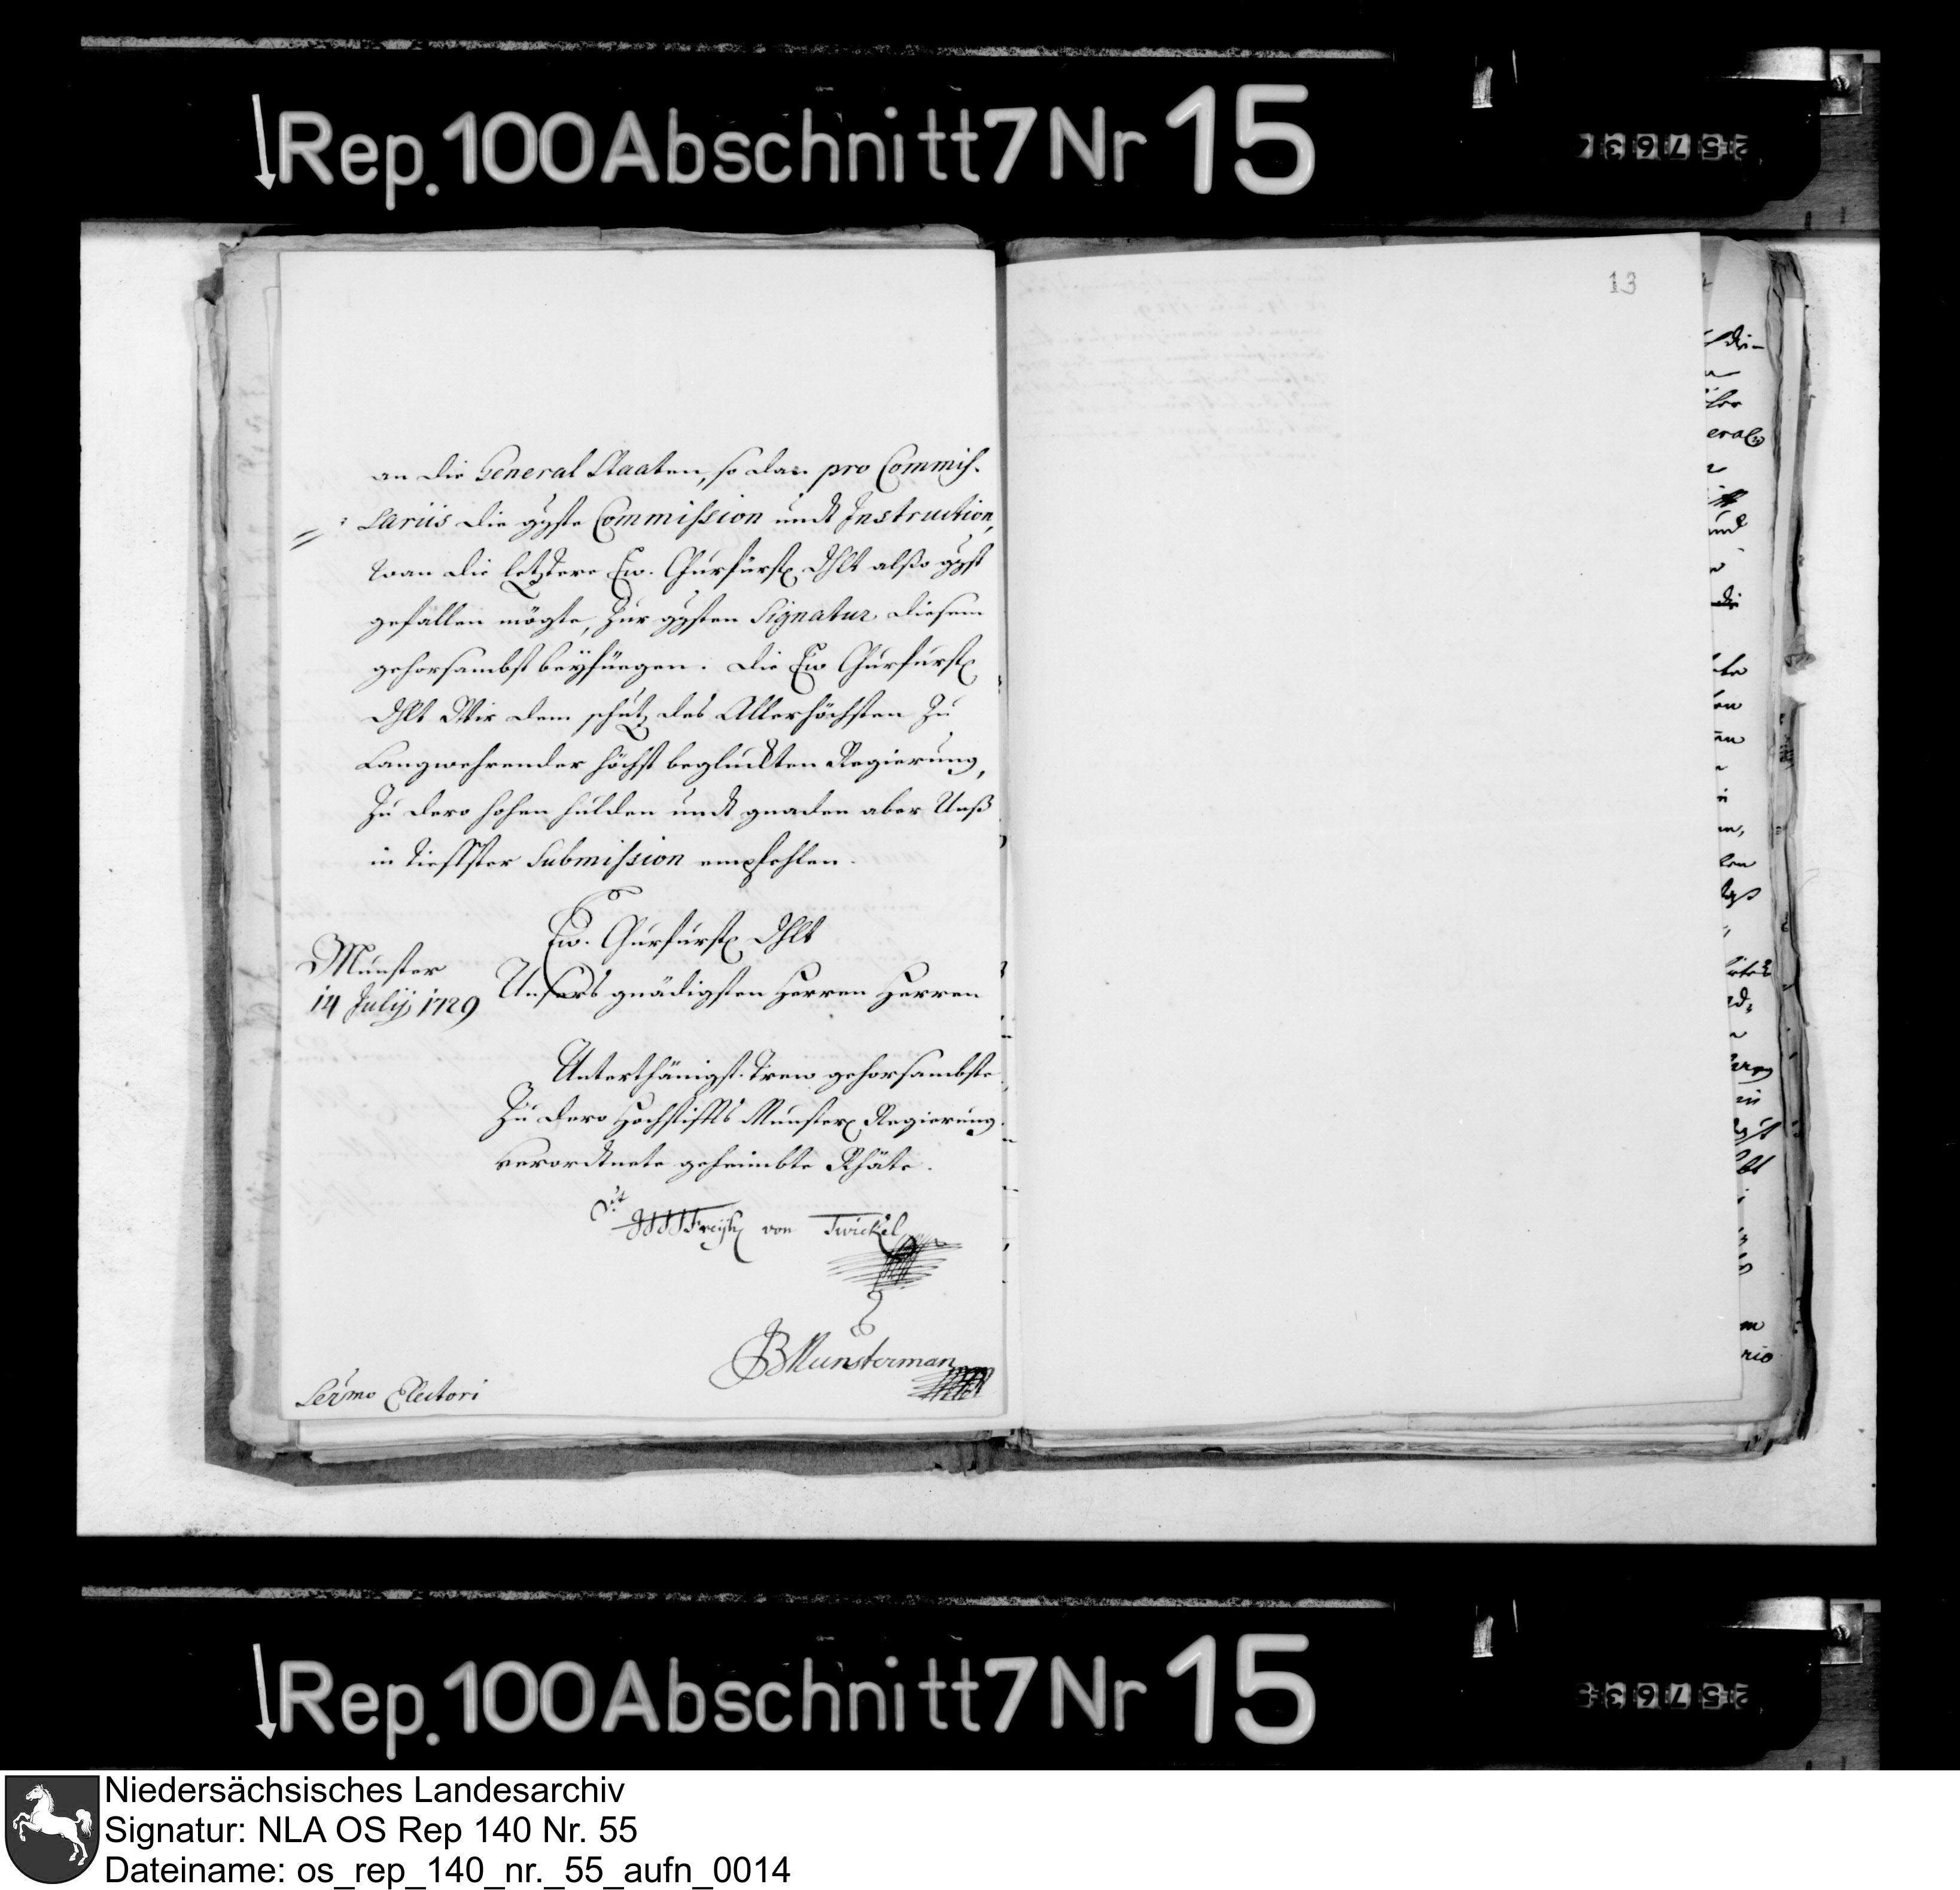 Rep. 100 Abschnitt 7 Nr 15
13
an die General Staaten, so dan pro Commis-
sariis die ggste Commission undt Instruction,
wan die letztere Ew. Churfürstl. Dhlt also ggst
gefallen mögte, zur ggsten Signatur diesem
gehorsambst beyfüegen. die Ew Churfürstl
Dhlt Wir dem schutz des Allerhöchsten zu
Langwehrender höchst beglückten Regierung,
zu dero hohen hulden undt gnaden aber Unß
in tieffster Submission empfehlen.
Ew. Churfürstl Dhlt
Unsers gnädigsten Herren Herren
Munster
14 Julij 1729
Unterthänigst. Trew gehorsambste
Zu dero Hochstiffts Munsterl Regierung
verordtnete geheimbte Rhäte.
von Twickel
JB Munsterman
Sermo Electori
Rep. 100 Abschnitt 7 Nr 15
Niedersächsisches Landesarchiv
Signatur: NLA OS Rep 140 Nr. 55
Dateiname: os_rep_140_nr._55_aufn_0014